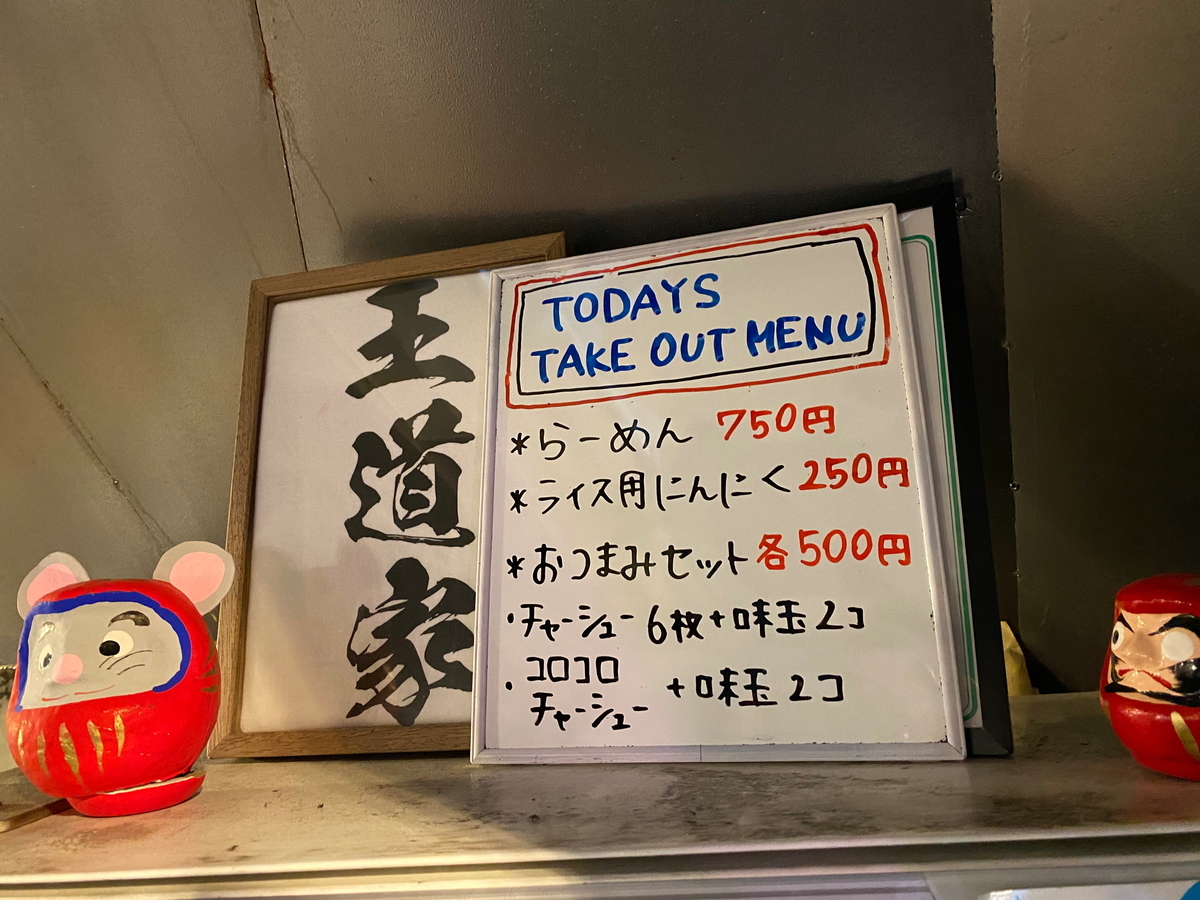 王道家
TODAYS
TAKE OUT MENU
*らーめん 750円
*ライス用にんにく 250円
*おつまみセット各500円
・チャーシュー6枚+味玉2コ
・コロコロ
チャーシュー +味玉2コ